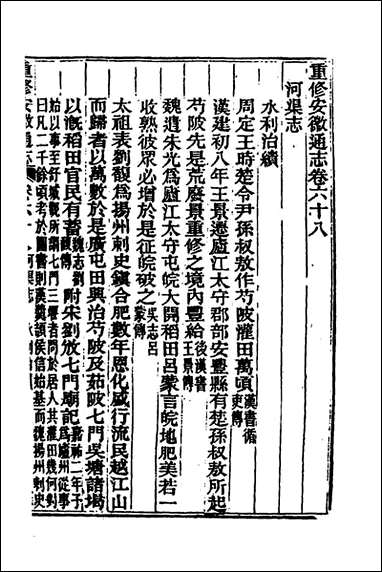 重修安徽通志卷六十八
河渠志
水利治績
周定王時楚令尹孫叔敖作芍陂灌田萬頃漢書循吏傳
漢建初八年王景遷廬江太守郡部安豐縣有楚孫叔敖所起
芍陂先是荒廢景重修之境內豐給後漢書王景傳
魏遣朱光爲廬江太守屯皖大開稻田呂蒙言皖地肥美若一
收熟彼眾必增於是征皖破之吳志呂蒙傳
太祖表劉馥爲揚州刺史鎮合肥數年恩化盛行流民越江山
而歸者以萬數於是廣屯田興治芍陂及茹陂七門吳塘諸堨
以漑稻田官民有蓄魏志劉馥傳附宋劉攽七門廟記嘉祐二年予爲廬州從事
始以事至舒城觀所謂七門三堰者問於居人其漑田幾何對
曰凡二千餘頃考於圖書則漢羹頡侯信始基而魏揚州刺史
重修安徽通志